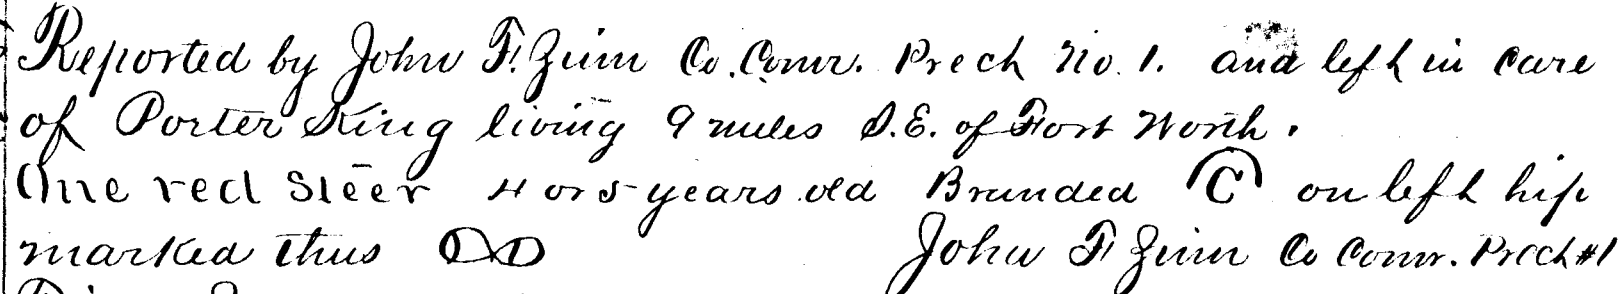 Reported by John F. Zinn Co. Comr. Prech No. 1. and left in care
of Porter King living 9 miles S.E. of Fort Worth.
One red Steer 4 or 5 years old Branded C on left hip
marked thus
John F Zinn Co Comr. Prech #1